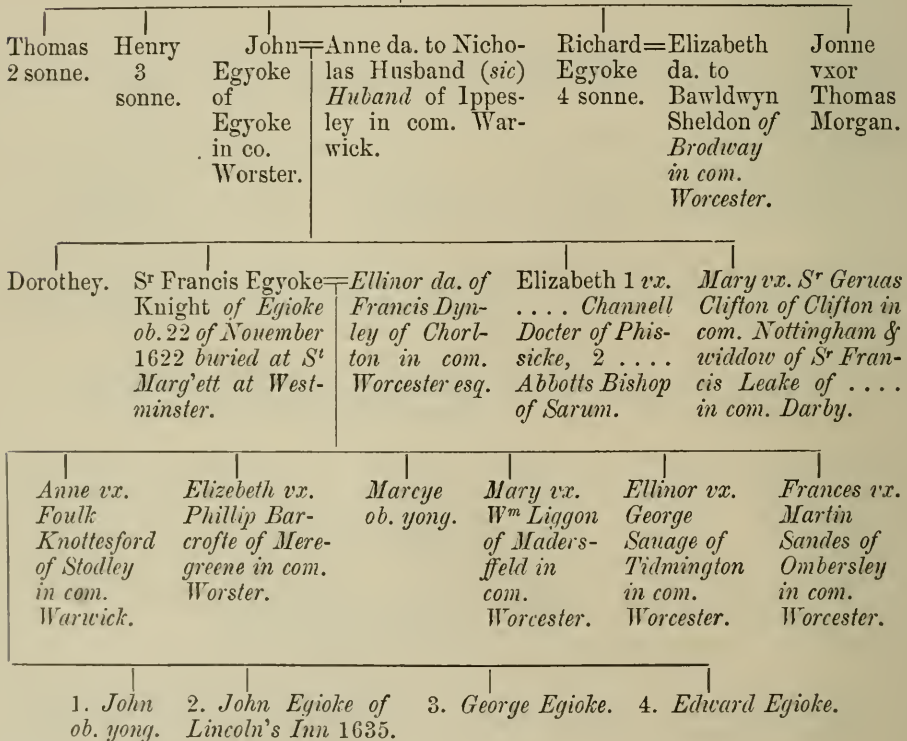 Thomas
2 sonne.
Henry
3
sonne.
John
Egyoke
of
Egyoke
in co.
Worster.
Anne da. to Nicho-
las Husband (sic)
Huband of Ippes-
ley in com. War-
wick.
Richard
Egyoke
4 sonne.
Elizabeth
da. to
Bawldwyn
Sheldon of
Brodway
in com.
Worcester.
Jonne
vxor
Thomas
Morgan.
Dorothey.
Sr Francis Egyoke
Knight of Egioke
ob. 22 of Nouember
1622 buried at St
Marg'ett at West-
minster.
Ellinor da. of
Francis Dyn-
ley of Chorl-
ton in com.
Worcester esq.
Elizabeth 1 vx.
.... Channell
Docter of Phis-
sicke, 2 ....
Abbotts Bishop
of Sarum.
Mary vx. Sr Geruas
Clifton of Clifton in
com. Nottingham &
widdow of Sr Fran-
cis Leake of ....
in com. Darby.
Anne vx.
Foulk
Knottesford
of Stodley
in com.
Warwick.
Elizebeth vx.
Phillip Bar-
crofte of Mere-
greene in com.
Worster.
Marcye
ob. yong.
Mary vx.
Wm Liggon
of Maders-
ffeld in
com.
Worcester.
Ellinor vx.
George
Sauage of
Tidmington
in com.
Worcester.
Frances vx.
Martin
Sandes of
Ombersley
in com.
Worcester.
1. John
ob. yong.
2. John Egioke of
Lincoln's Inn 1635.
3. George Egioke.
4. Edward Egioke.